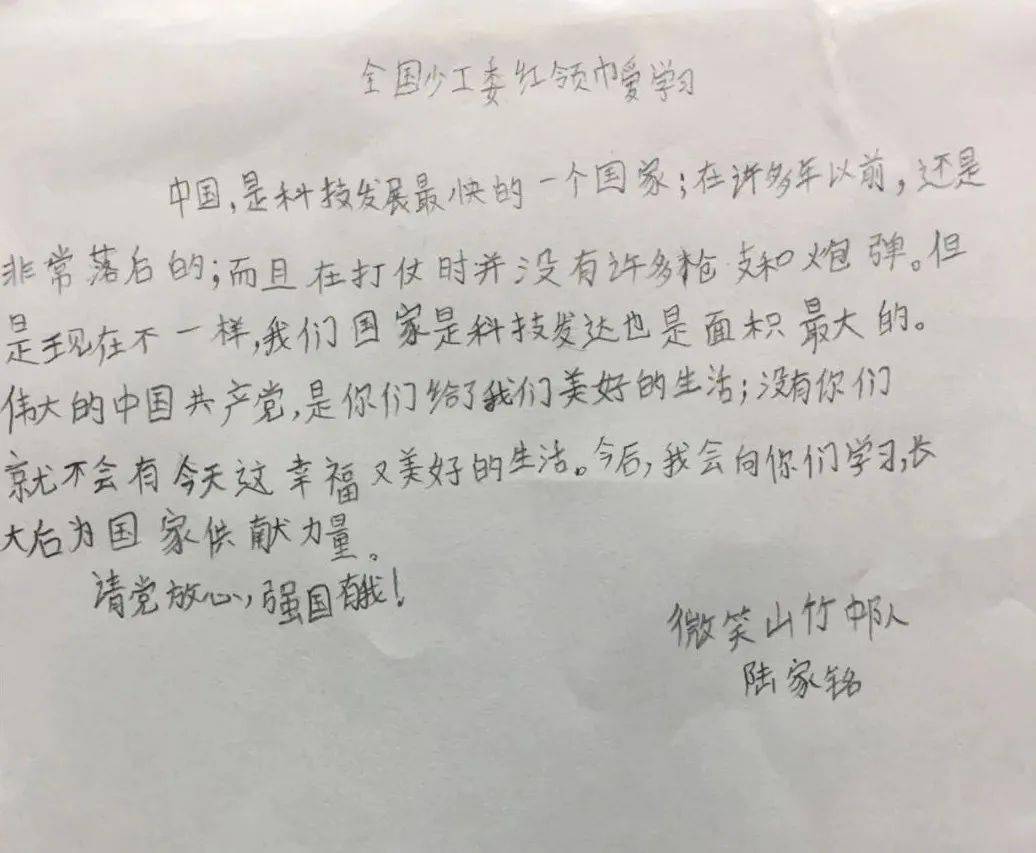 全国少工委红领巾爱学习
中国,是科技发展最快的一个国家;在许多年以前,还是
非常落后的;而且在打仗时并没有许多枪支和炮弹。但
是现在不一样,我们国家是科技发达也是面积最大的。
伟大的中国共产党,是你们给了我们美好的生活;没有你们
就不会有今天这幸福又美好的生活。今后,我会向你们学习,长
大后为国家供献力量。
请党放心,强国有我!
微笑山竹中队
陆家铭